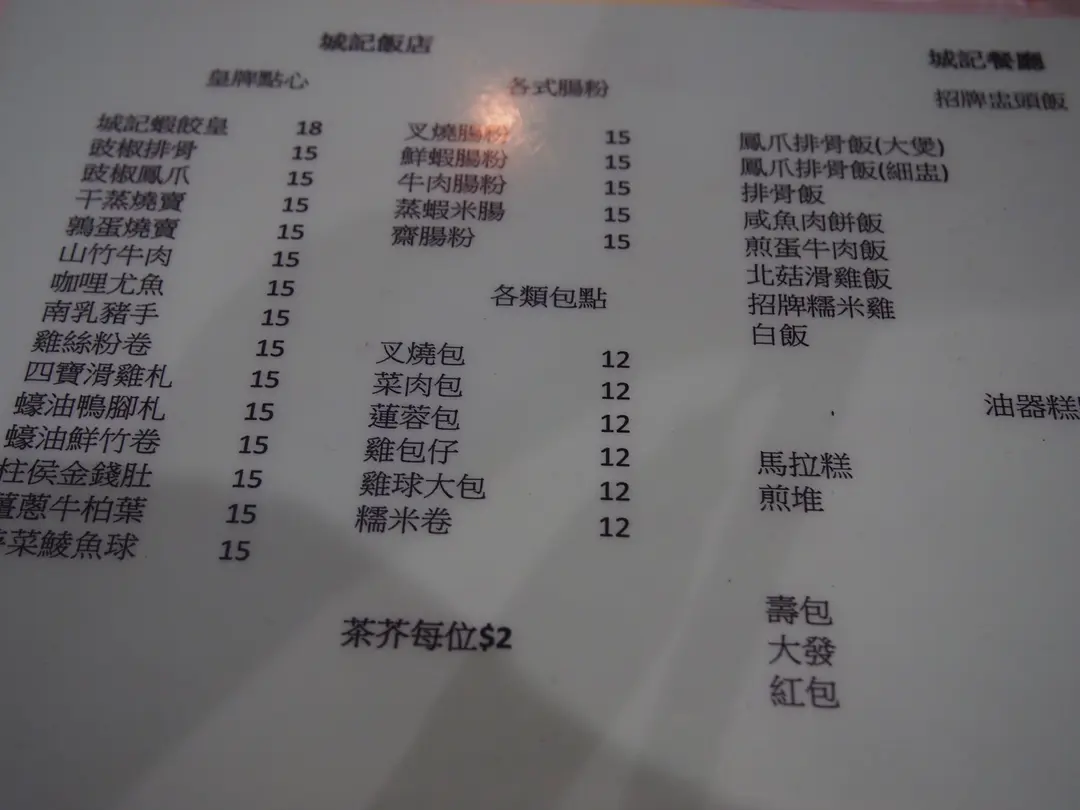 城記飯店
皇牌點心
城記蝦餃皇 18
豉椒排骨 15
豉椒鳳爪 15
干蒸燒賣 15
鶉蛋燒賣 15
山竹牛肉 15
咖哩尤魚 15
南乳豬手 15
雞絲粉卷 15
四寶滑雞札 15
蠔油鴨腳札 15
蠔油鮮竹卷 15
柱侯金錢肚 15
薑蔥牛柏葉 15
菜鯪魚球 15
各式腸粉
叉燒腸粉 15
鮮蝦腸粉 15
牛肉腸粉 15
蒸蝦米腸 15
齋腸粉 15
各類包點
叉燒包 12
菜肉包 12
蓮蓉包 12
雞包仔 12
雞球大包 12
糯米卷 12
茶芥每位$2
城記餐廳
招牌盅頭飯
鳳爪排骨飯(大煲)
鳳爪排骨飯(細盅)
排骨飯
咸魚肉餅飯
煎蛋牛肉飯
北菇滑雞飯
招牌糯米雞
白飯
油器糕
馬拉糕
煎堆
壽包
大發
紅包